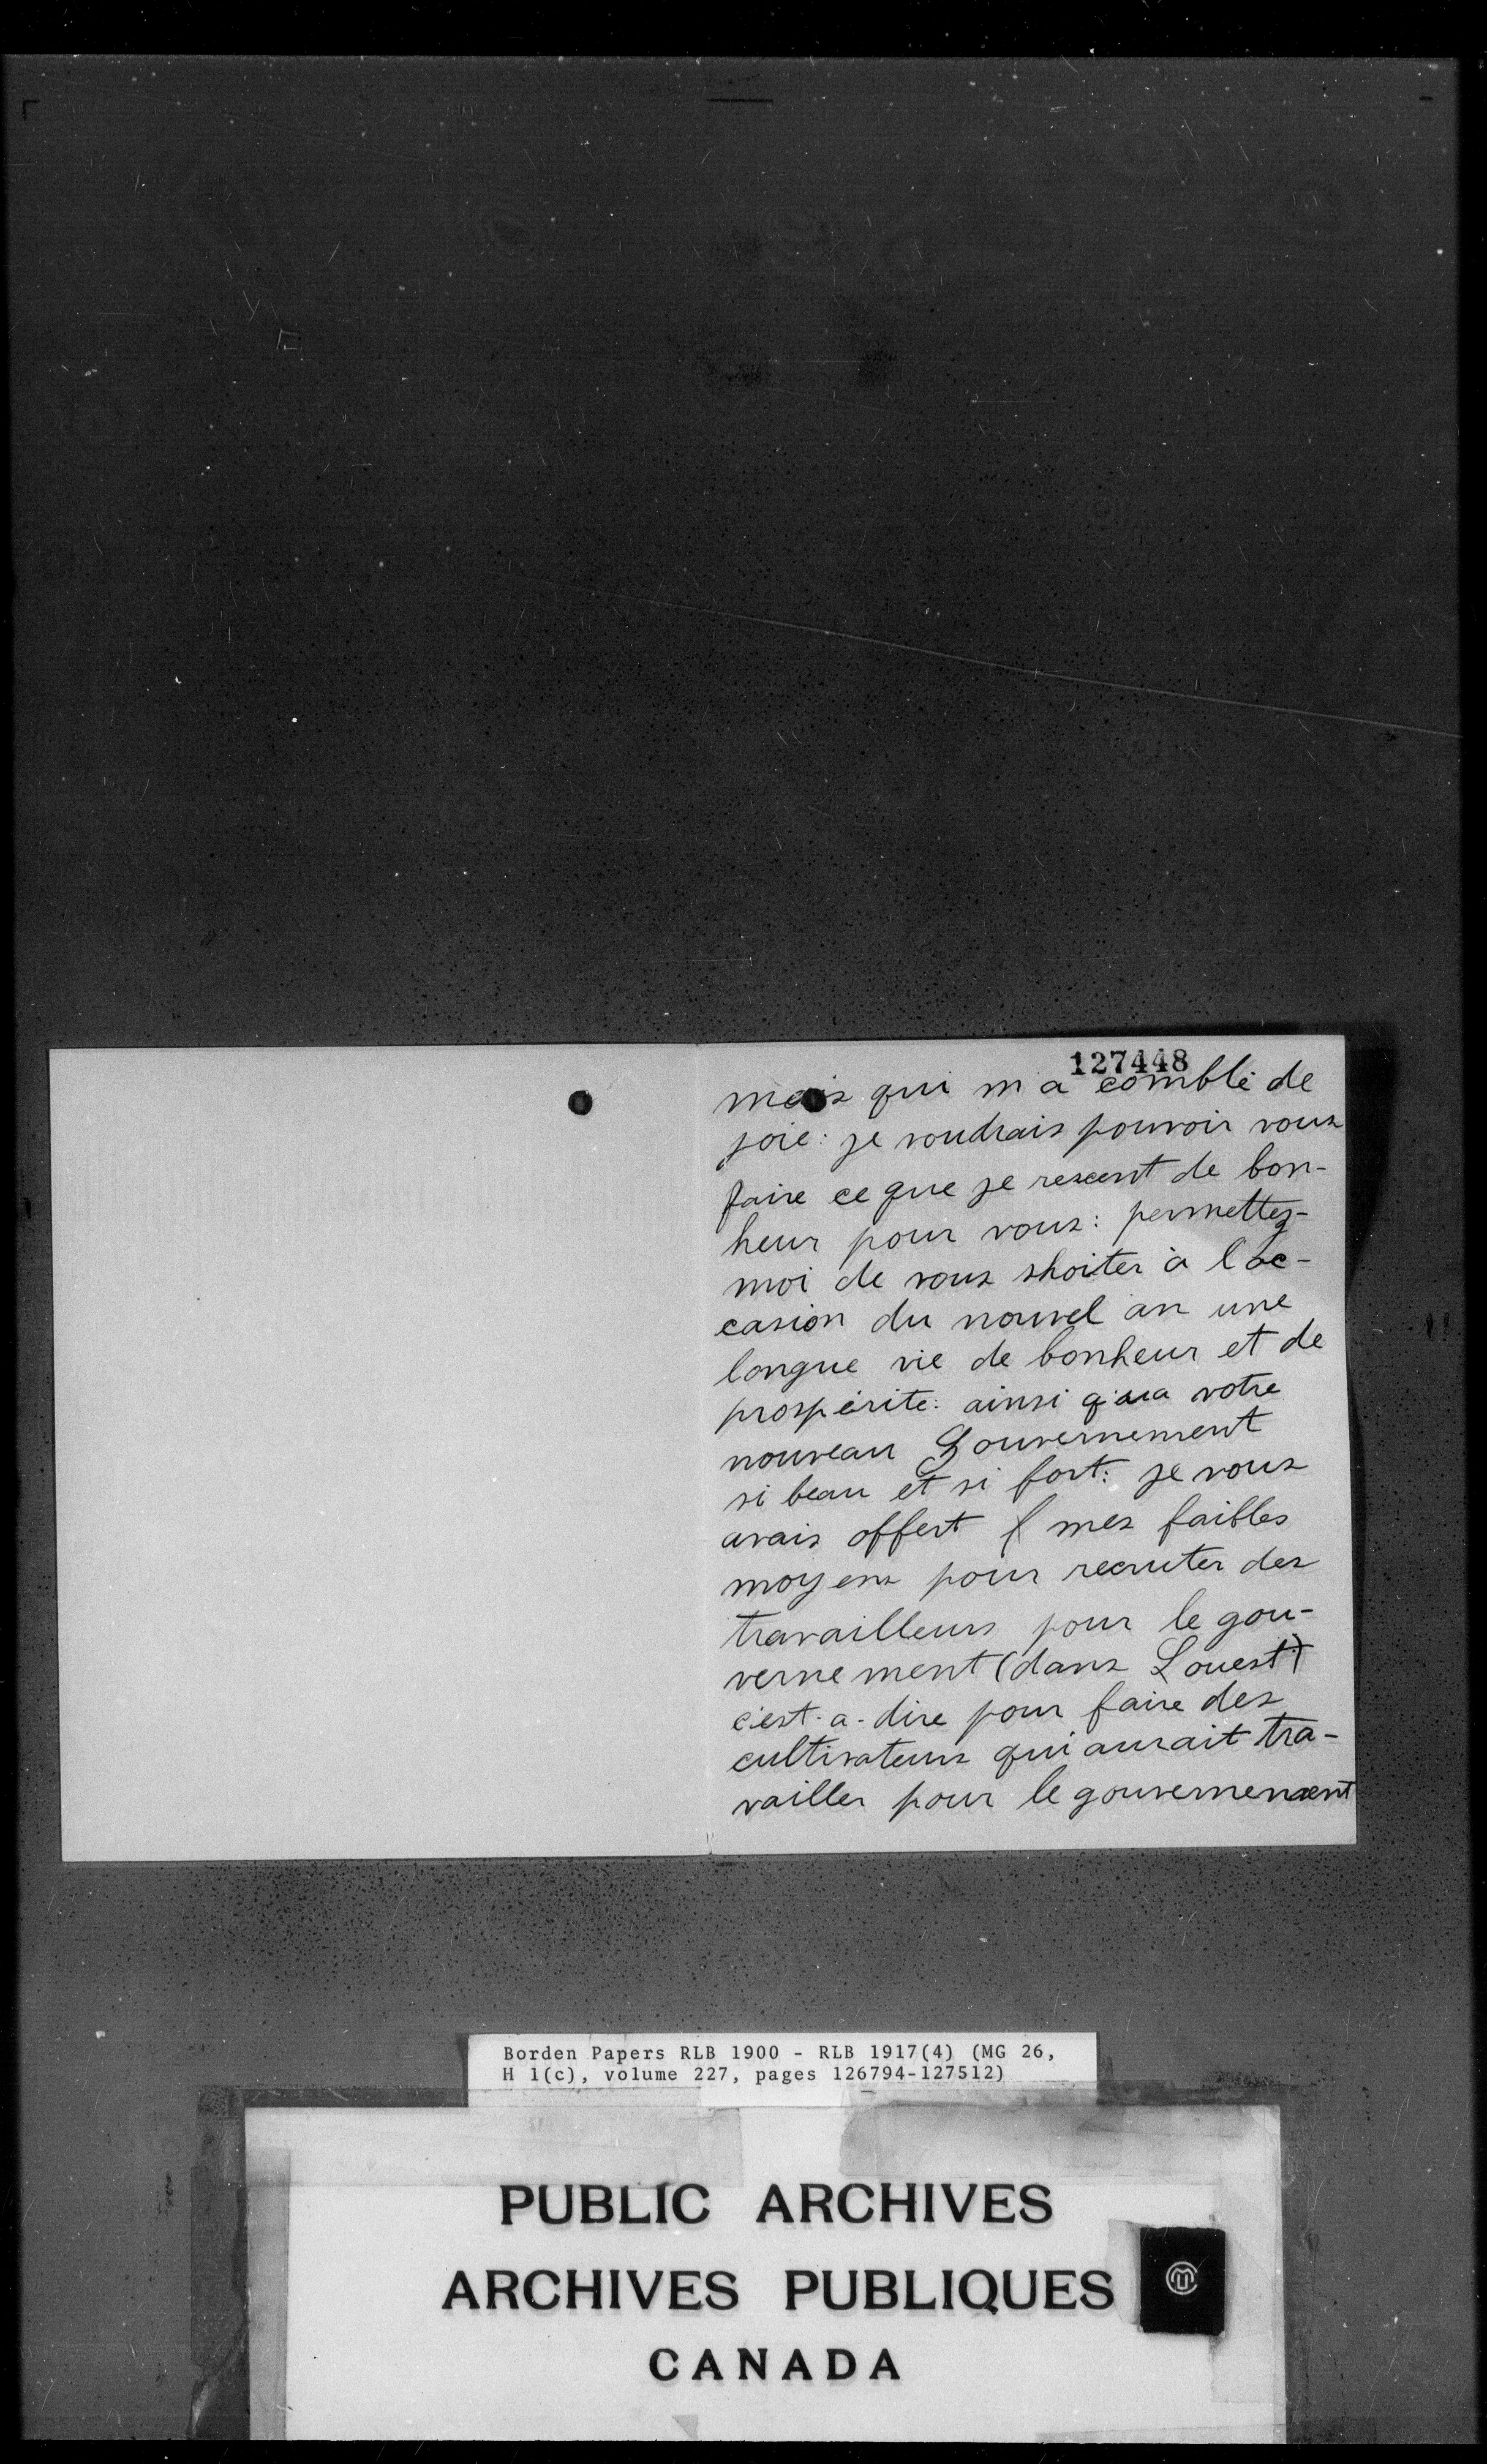 127448
mais qui m a comblé de
joie: je voudrais pouvoir vous
faire ce que je rescent de bon-
heur pour vous: permettez-
moi de vous shoiter à l oc-
casion du nouvel an une
longue vie de bonheur et de
prospérite: ainsi q'ua votre
nouveau Gouvernement
si beau et si fort: je vous
avais offert mes faibles
moyens pour recruter des
travailleurs pour le gou-
vernement (dans L ouest)
c'est-a-dire pour faire des
cultivateurs qui aurait tra-
vailler pour le gouvernement
Borden Papers RLB 1900 - RLB 1917(4) (MG 26,
H 1(c), volume 227, pages 126794-127512)
PUBLIC ARCHIVES
ARCHIVES PUBLIQUES
CANADA